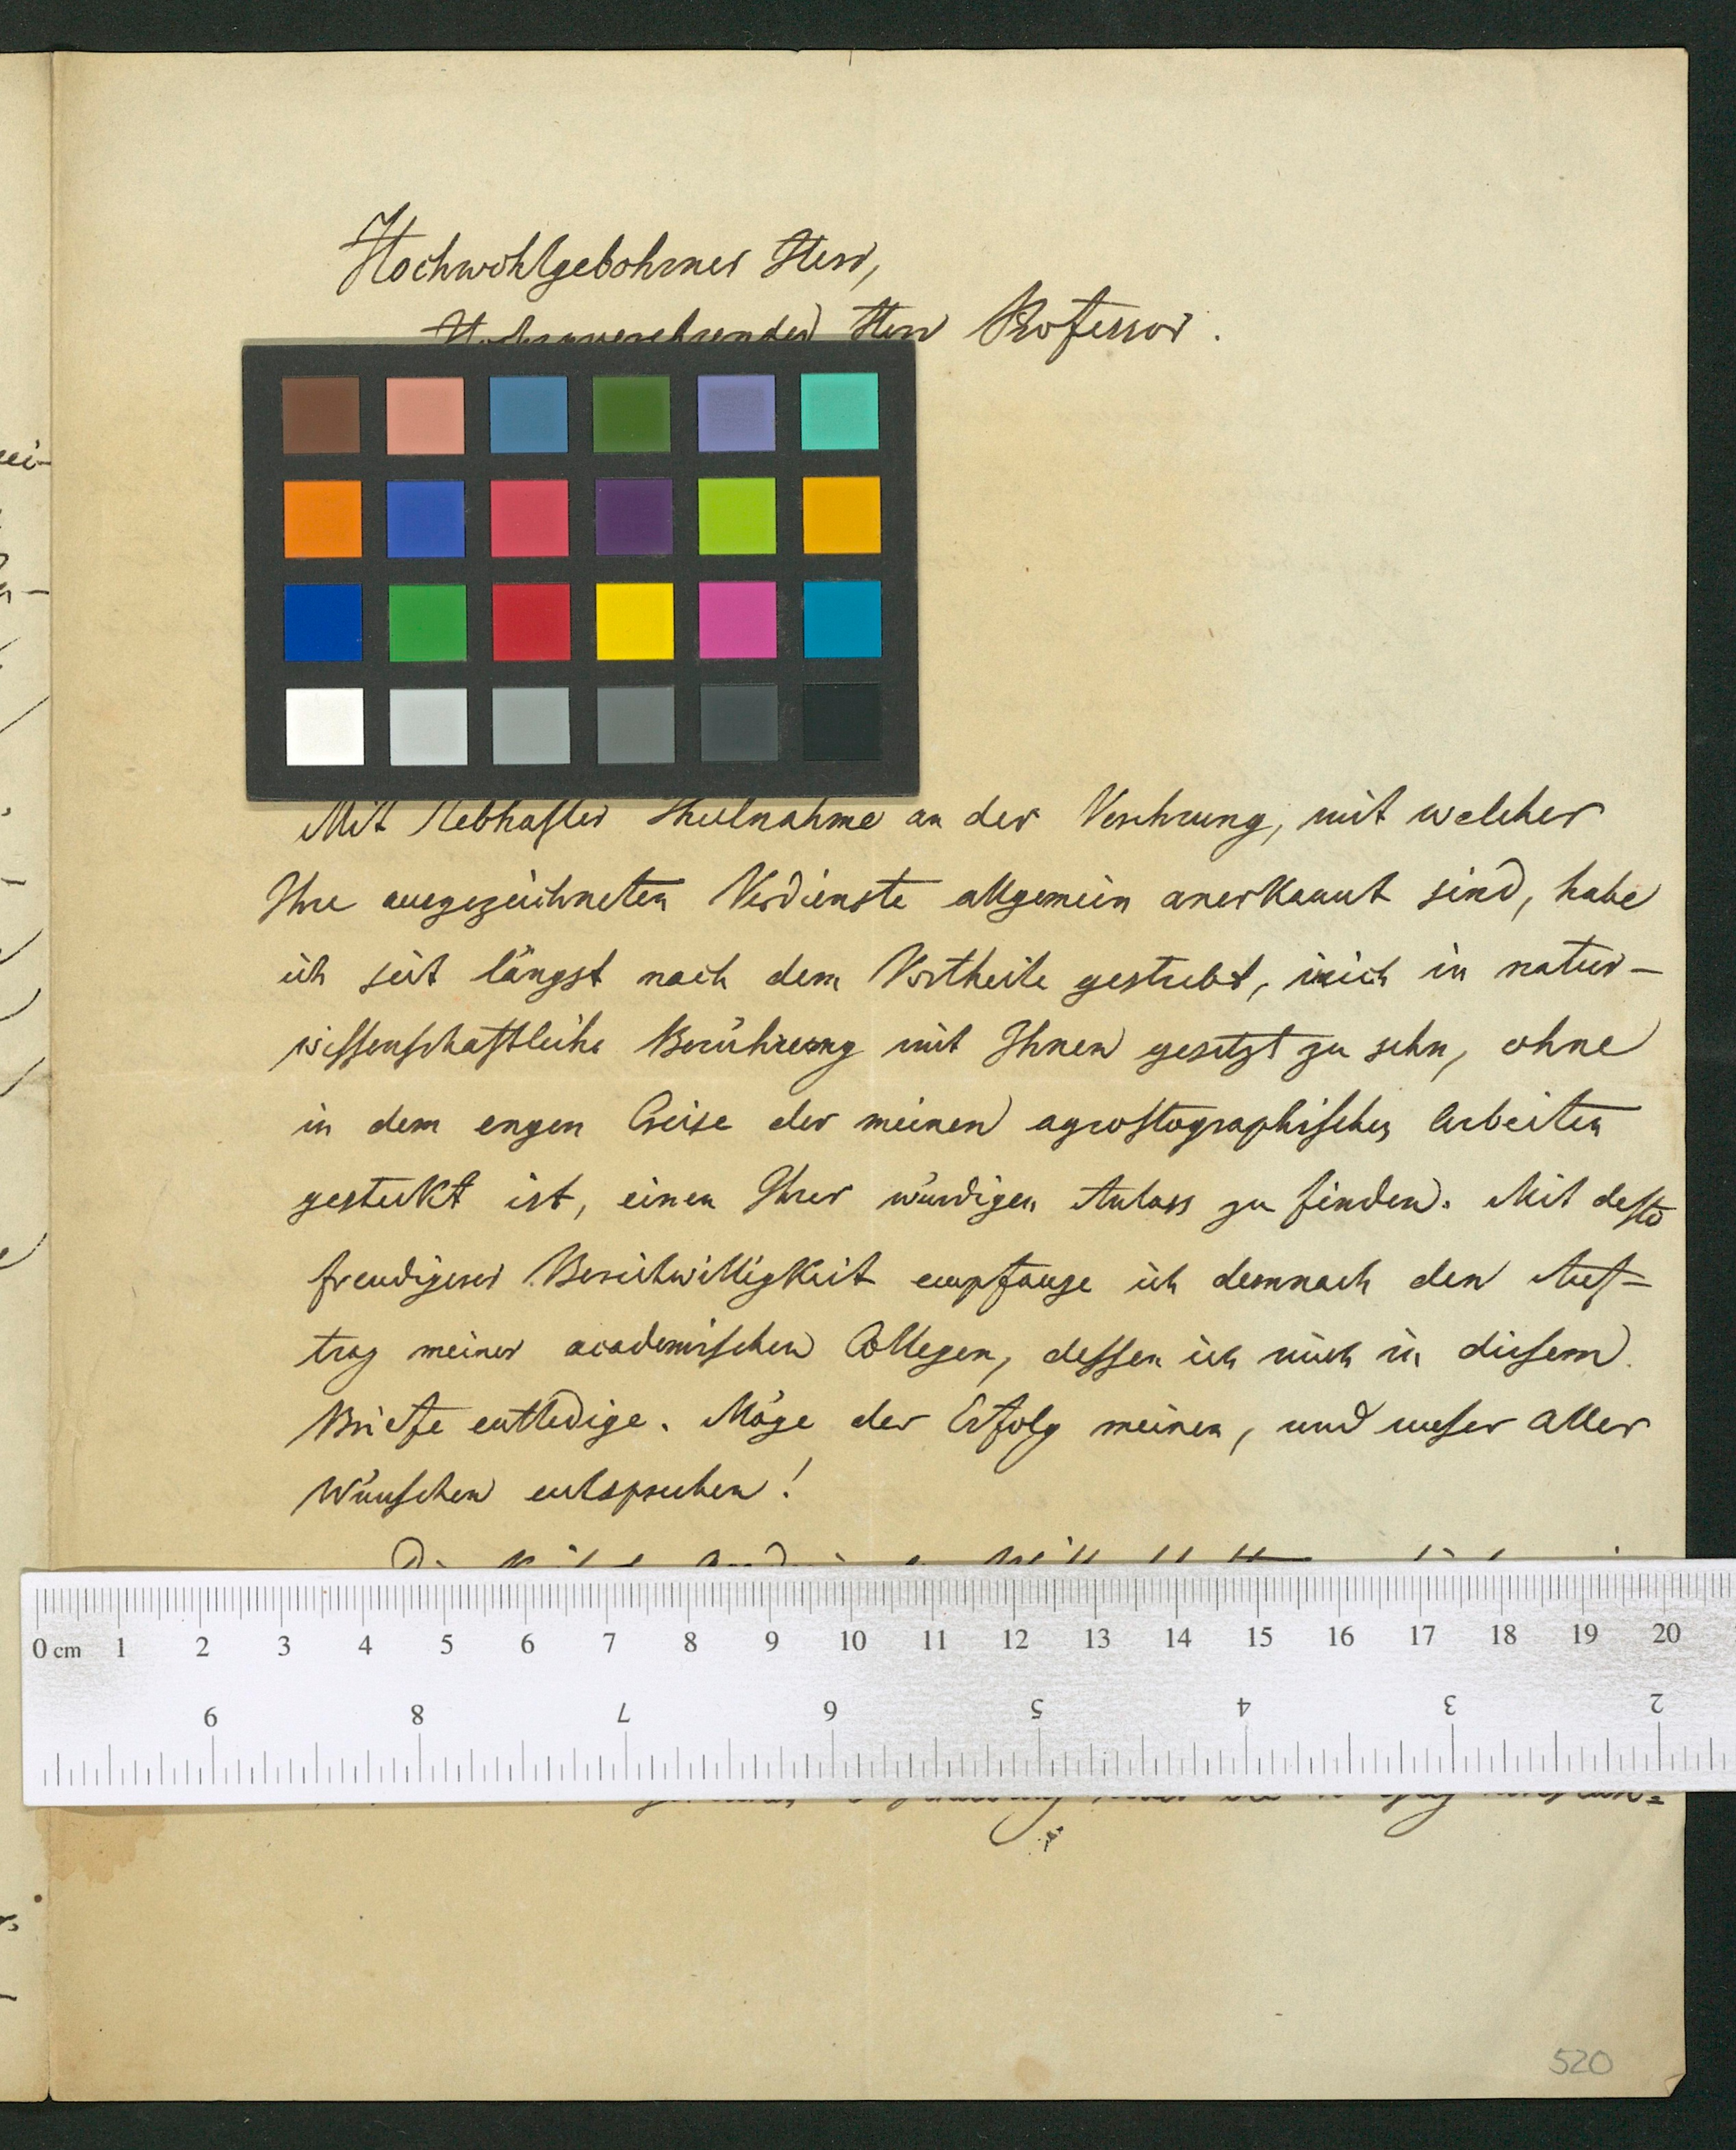 Hochwohlgebohrner Herr,
Hochzuverehrender Herr Professor.
Mit lebhafter Theilnahme an der Verehrung, mit welcher
Ihre ausgezeichneten Verdienste allgemein anerkannt sind, habe
ich seit längst nach dem Vortheile gestrebt, mich in natur-
wissenschaftliche Berührung mit Ihnen gesetzt zu sehn, ohne
in dem engen Creise der meinen agrostographischen Arbeiten
gestekt ist, einen Ihrer würdigen Anlass zu finden. Mit desto
freudigerer Bereitwilligkeit empfange ich demnach den Auf-
trag meiner academischen Collegen, dessen ich mich in diesem
Briefe entledige. Möge der Erfolg meinen, und unser aller
Wünschen entsprechen!
0 cm 1 2 3 4 5 6 7 8 9 10 11 12 13 14 15 16 17 18 19 20
9 8 7 6 5 4 3 2
520